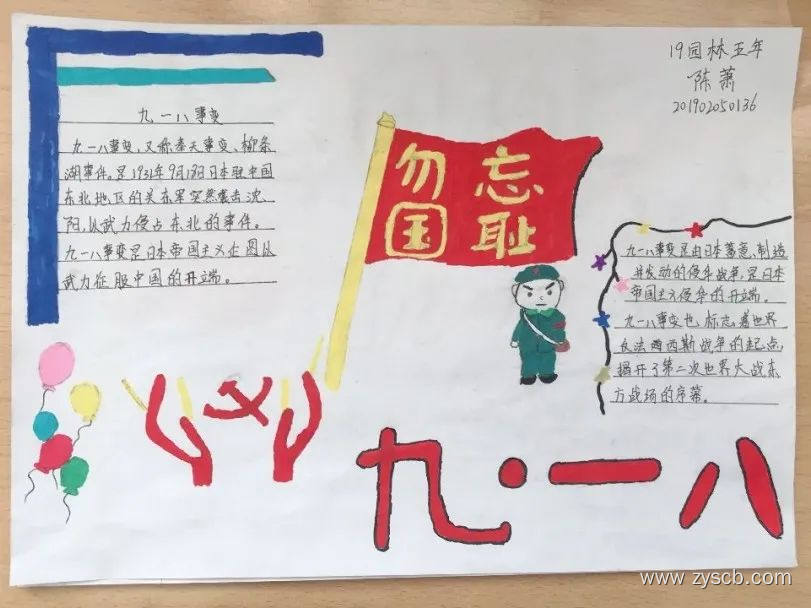 19园林五年
陈萧
201902050136
九一八事变
九一八事变，又称奉天事变、柳条
湖事件。是1931年9月18日日本驻中国
东北地区的关东军突然袭击沈
阳，以武力侵占东北的事件。
九一八事变是日本帝国主义企图以
武力征服中国的开端。
勿忘
国耻
九一八事变是由日本蓄意、制造
并发动的侵华战争，是日本
帝国主义侵华的开端。
九一八事变也标志着世界
反法西西斯战争的起点，
揭开了第二次世界大战东
方战场的序幕。
九·一八
www.zyscb.com